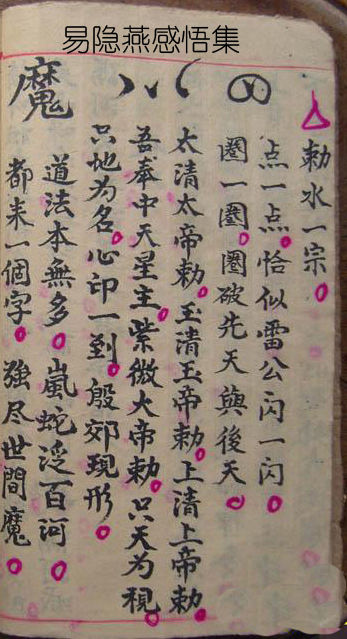 易隐燕感悟集
勅水一宗。
点一点。恰似雷公闪一闪。
圈一圈。圈破先天與後天。
太清太帝勅。玉清玉帝勅。上清上帝勅。
吾奉中天星主。紫微大帝勅。只天为視。
只地为名。心印一到。殷郊现形。
道法本無多。嵐蛇泛百河。
都来一個字。強尽世間魔。
魔